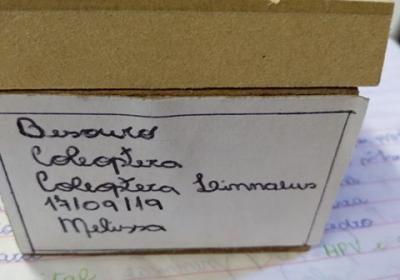 Besouro
Coleoptera
Coleoptera Linnaeus
17/09/19
Melissa
HPV e